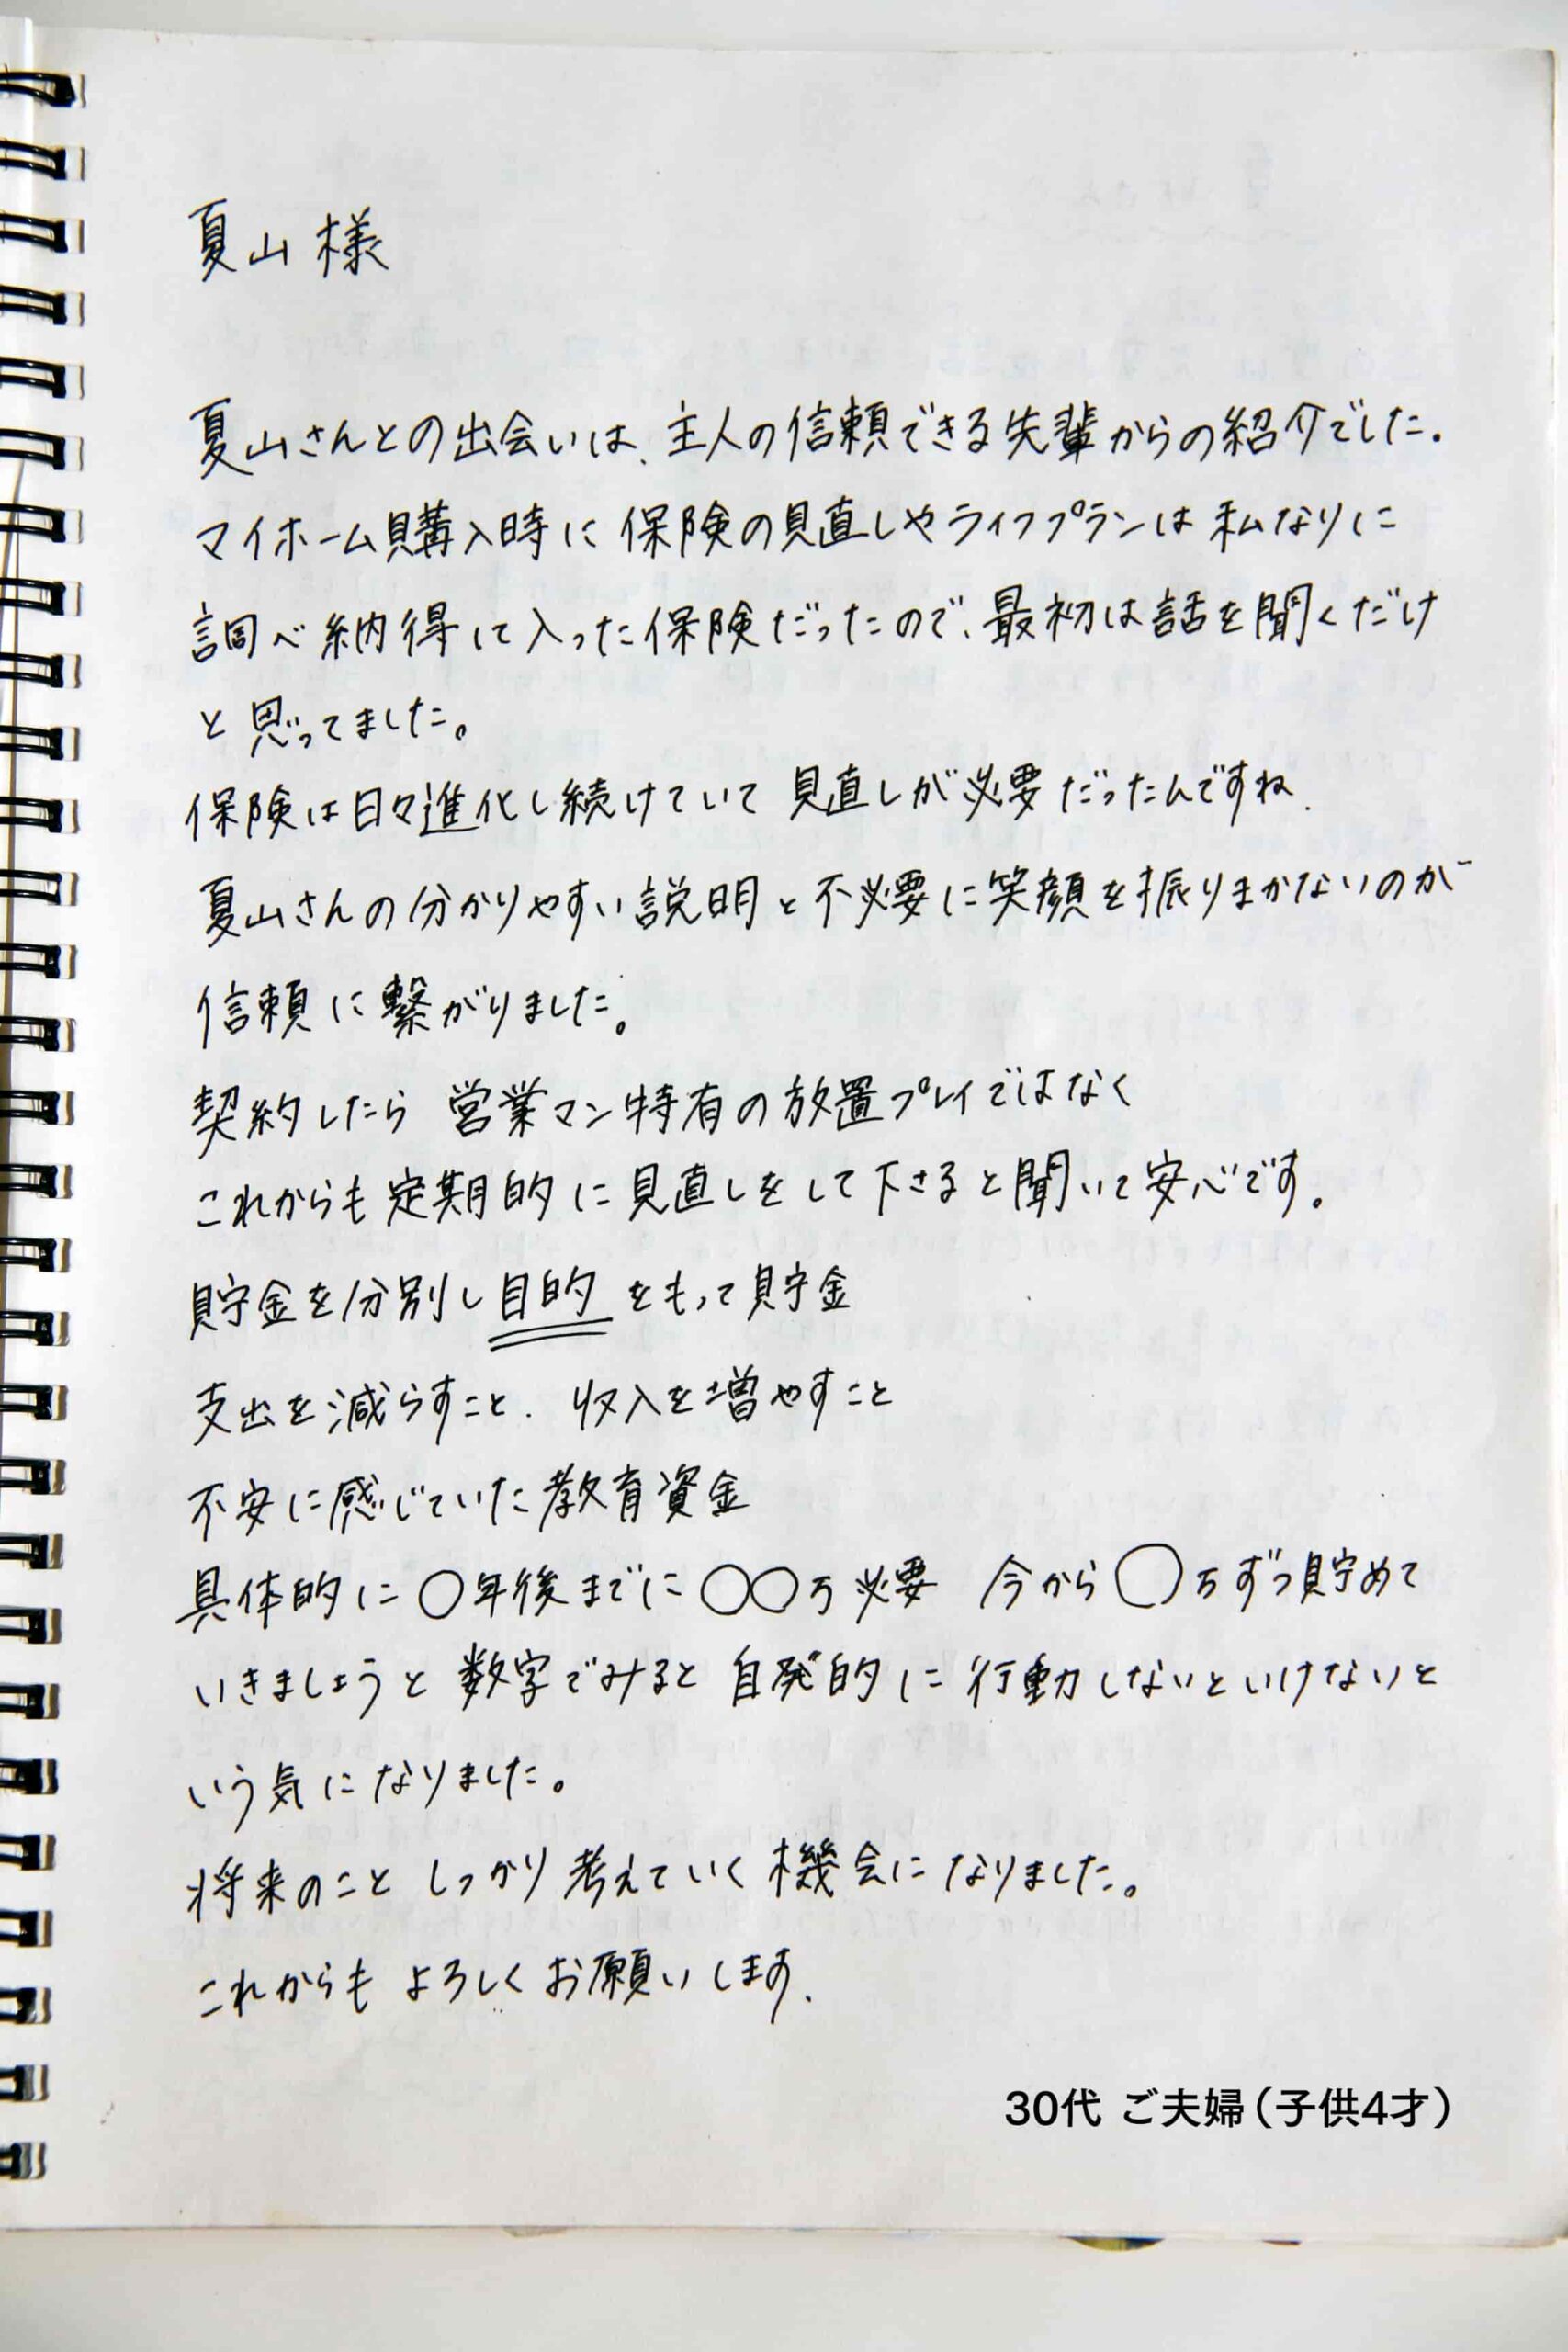 夏山様
夏山さんとの出会いは、主人の信頼できる先輩からの紹介でした。
マイホーム購入時に保険の見直しやライフプランは私なりに
調べ納得して入った保険だったので、最初は話を聞くだけ
と思ってました。
保険は日々進化し続けていて見直しが必要だったんですね、
夏山さんの分かりやすい説明と不必要に笑顔を振りまかないのが
信頼に繋がりました。
契約したら 営業マン特有の放置プレイではなく
これからも定期的に見直しをして下さると聞いて安心です。
貯金を分別し目的をもって貯金
支出を減らすこと、収入を増やすこと
不安に感じていた教育資金
具体的に〇年後までに〇〇万必要 今から〇万ずつ貯めて
いきましょうと数字でみると自発的に行動しないといけないと
いう気になりました。
将来のことしっかり考えていく機会になりました。
これからもよろしくお願いします、
30代 ご夫婦（子供4才）